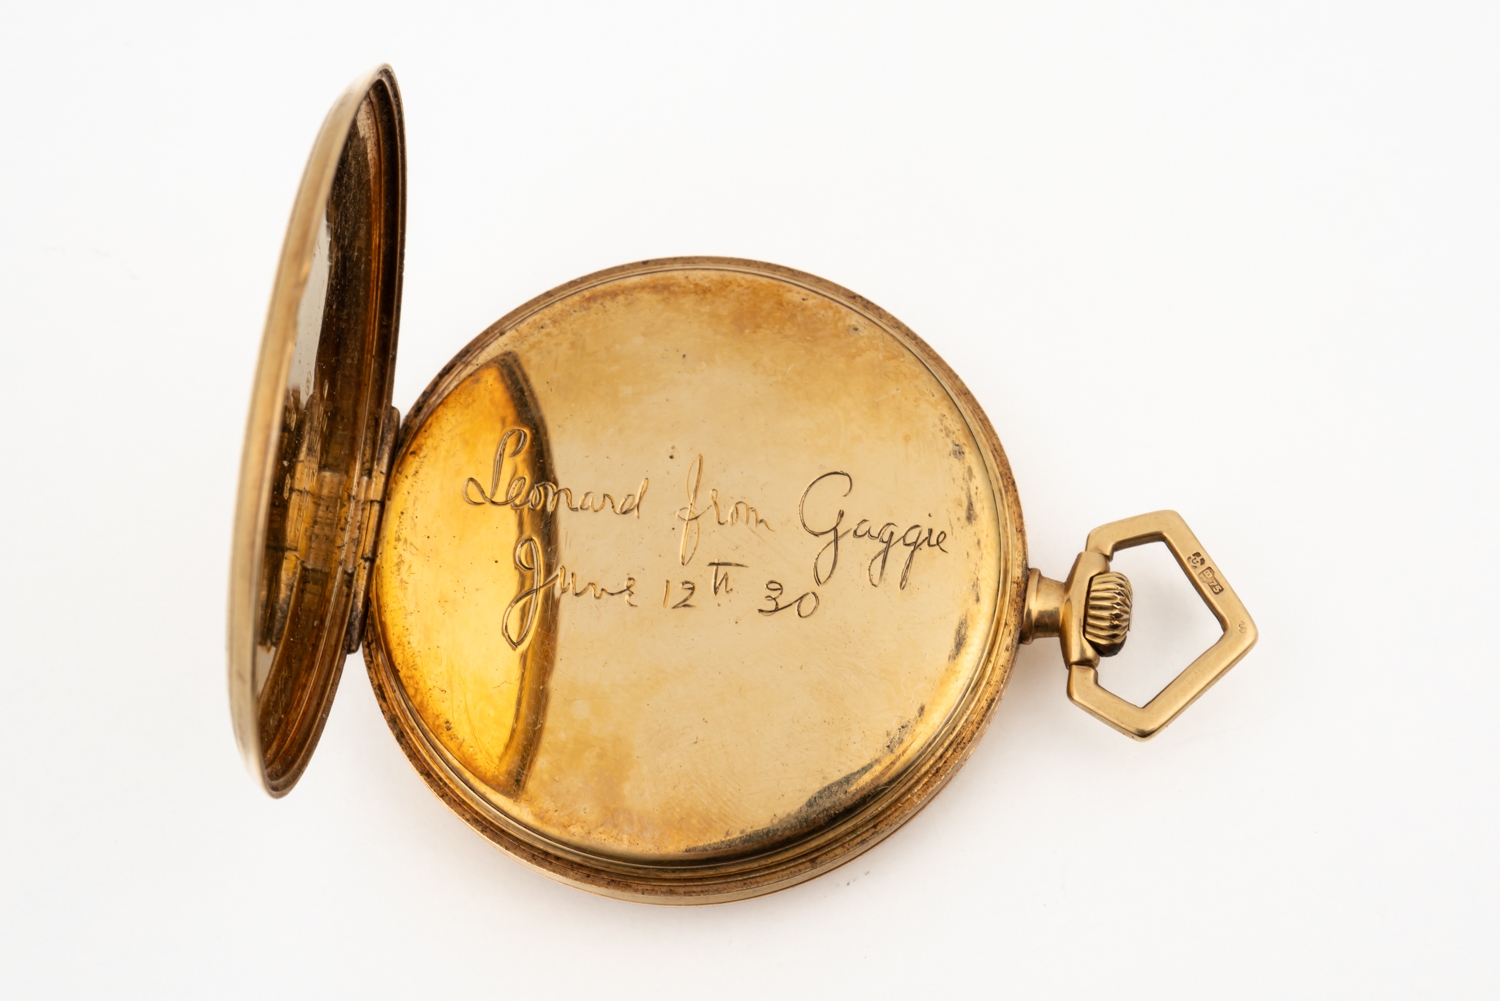 Leonard from Gaggie
June 12th 30